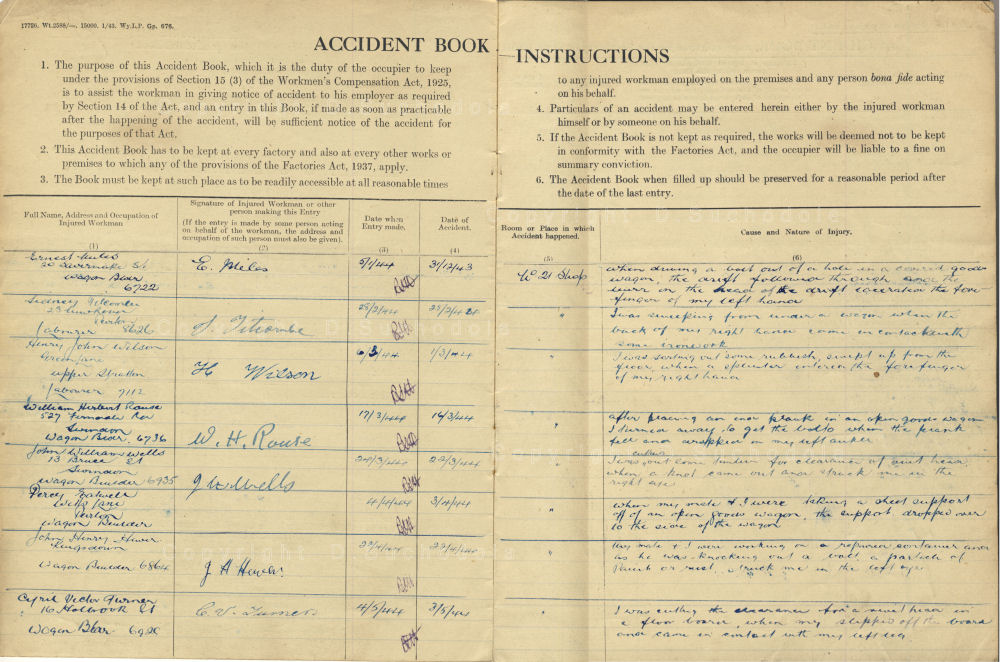 17726. Wt.2588/—. 15000. 1/43. Wy.L.P. Gp. 676.
ACCIDENT BOOK
1. The purpose of this Accident Book, which it is the duty of the occupier to keep
under the provisions of Section 15 (3) of the Workmen's Compensation Act, 1925,
is to assist the workman in giving notice of accident to his employer as required
by Section 14 of the Act, and an entry in this Book, if made as soon as practicable
after the happening of the accident, will be sufficient notice of the accident for
the purposes of that Act.
2. This Accident Book has to be kept at every factory and also at every other works or
premises to which any of the provisions of the Factories Act, 1937, apply.
3. The Book must be kept at such place as to be readily accessible at all reasonable times
INSTRUCTIONS
to any injured workman employed on the premises and any person bona fide acting
on his behalf.
4. Particulars of an accident may be entered herein either by the injured workman
himself or by someone on his behalf.
5. If the Accident Book is not kept as required, the works will be deemed not to be kept
in conformity with the Factories Act, and the occupier will be liable to a fine on
summary conviction.
6. The Accident Book when filled up should be preserved for a reasonable period after
the date of the last entry.
Full Name, Address and Occupation of
Injured Workman
(1)
Signature of Injured Workman or other
person making this Entry
(If the entry is made by some person acting
on behalf of the workman, the address and
occupation of such person must also be given).
(2)
Date when
Entry made.
(3)
Date of
Accident.
(4)
Room or Place in which
Accident happened.
(5)
Cause and Nature of Injury.
(6)
Ernest Miles
Wagon Bldr
6722
E. Miles
5/1/44
31/12/43
No 21 Shop
when driving a bolt out of a hole in a covered goods
wagon, the drift followed through
on the head of the drift lacerating the fore
finger of my left hand
Sidney Titcombe
Purton
Labourer
S. Titcombe
25/2/44
"
I was sweeping from under a wagon when the
back of my right hand came in contact with
some ironwork
Henry John Wilson
Green Lane
Upper Stratton
Labourer 7112
H Wilson
6/3/44
1/3/44
"
I was sorting out some rubbish, swept up from the
floor, when a splinter entered the forefinger
of my right hand
William Herbert Rouse
527 Ferndale Rd
Swindon
Wagon Bldr. 6736
W. H. Rouse
17/3/44
16/3/44
"
after placing an end plank in an open goods wagon
I turned away to get the bolts when the plank
fell and dropped on my left ankle
John William Wells
13 Bruce St
Swindon
Wagon Builder 6935
J W Wells
22/3/44
"
I was cutting some timber for clearance of rivet head,
when a knot came out and struck me in the
right eye
Percy
Purton
Wagon Builder
4/4/44
3/4/44
"
when my mate & I were taking a sheet support
off of an open goods wagon, the support dropped over
to the side of the wagon
John Henry
Kingsdown
Wagon Builder 6864
22/4/44
"
My mate & I were working on a container and
as he was knocking out a bolt a particle of
paint or rust, struck me in the left eye.
Cyril Victor Turner
16 Holbrook St
Wagon Bldr. 6929
C. V. Turner
4/5/44
3/5/44
"
I was cutting the clearance for a rivet head in
a floor board, when my slipped off the board
and came in contact with my left leg